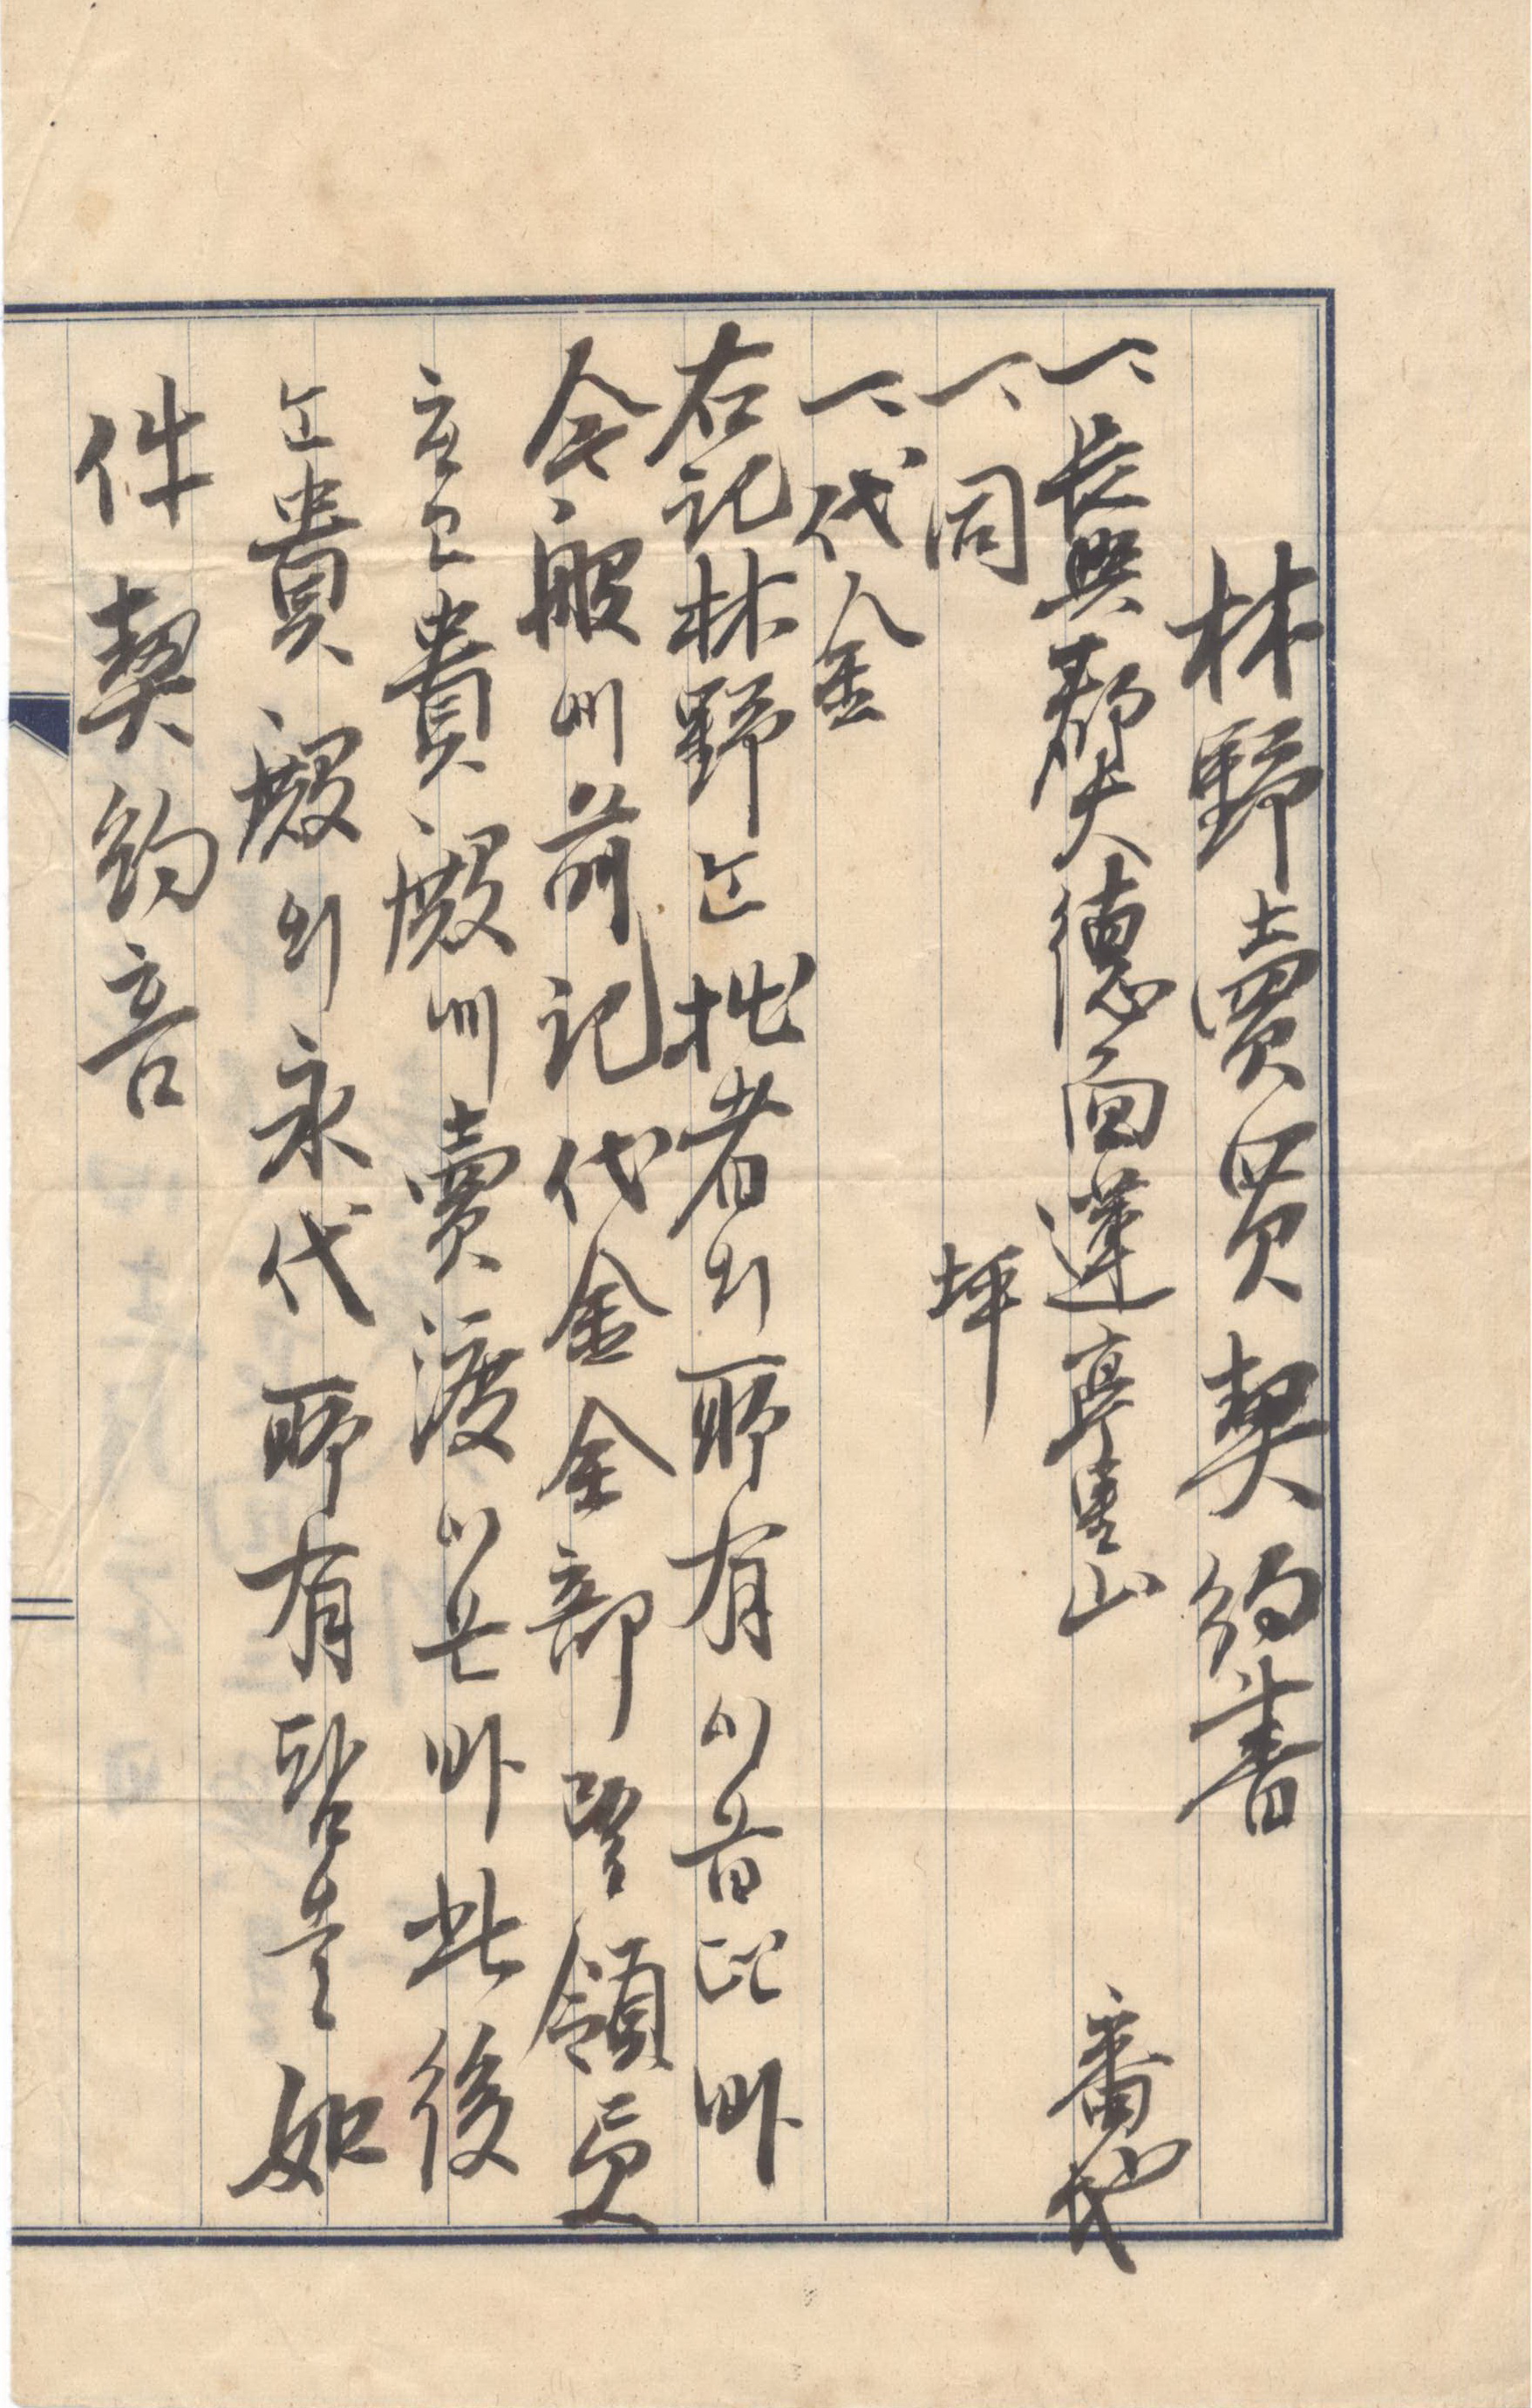 林野賣買契約書
一、長興郡大德面蓮亭里山 番地
一、同 坪
一、代金
右記林野는拙者의所有이
今般에前記代金全部를領受
하고貴殿에賣渡이온바此後
는貴殿의永代所有 을如
件契約